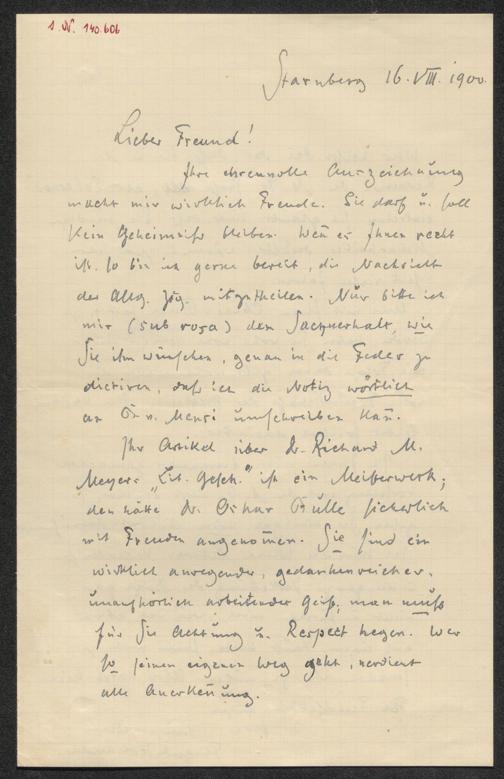 I. N. 140.606
Starnberg 16. VIII. 1900.
Lieber Freund!
Ihre ehrenvolle Auszeichnung
macht mir wirklich Freude. Sie darf u. soll
kein Geheimniß bleiben. Wen̄ es Ihnen recht
ist, so bin ich gerne bereit, die Nachricht
der Allg. Ztg. mitzutheilen. Nur bitte ich
mir (sub rosa) den Sachverhalt, wie
Sie ihn wünschen, genau in die Feder zu
dictiren, daß ich die Notiz wörtlich
an v. Mensi umschreiben kan̄.
Ihr Artikel über Dr. Richard M.
Meyers „Lit. Gesch." ist ein Meisterwerk;
den hätte Dr. Oskar Bulle sicherlich
mit Freuden angenom̄en. Sie sind ein
wirklich anregender, gedankenreicher,
unaufhörlich arbeitender Geist; man muß
für Sie Achtung u. Respect hegen. Wer
so seinen eigenen Weg geht, verdient
alle Anerken̄ung.